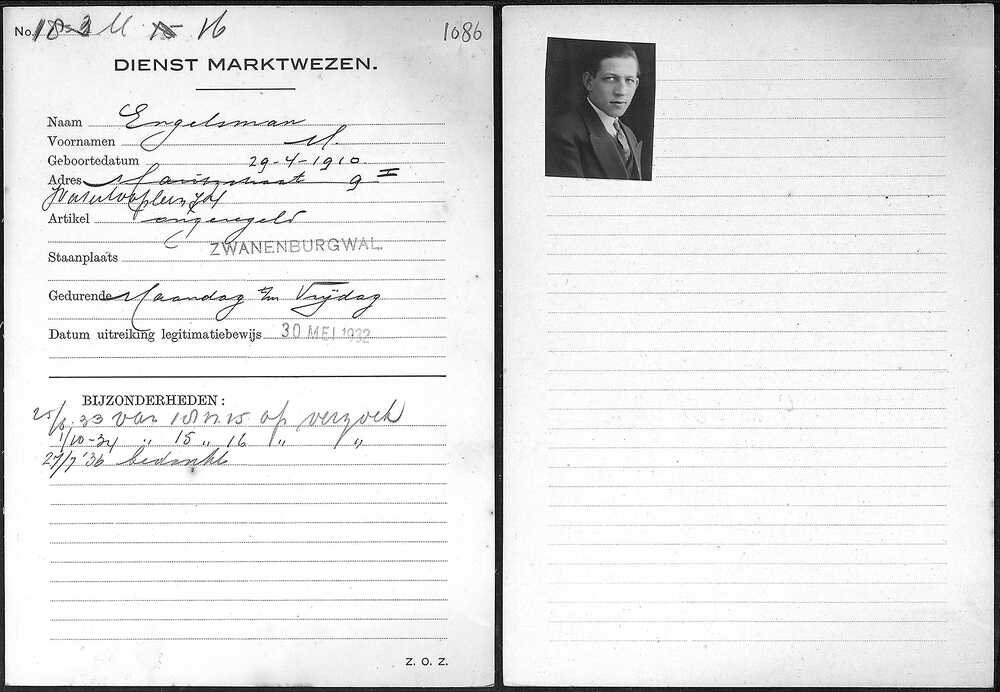 No. 16 1086
DIENST MARKTWEZEN.
Naam Engelsman
Voornamen M.
Geboortedatum 29-4-1910.
Adres 9 I
Waterlooplein
Artikel ongeregeld
ZWANENBURGWAL.
Staanplaats
Gedurende Maandag t/m Vrijdag
Datum uitreiking legitimatiebewijs 30 MEI 1932
BIJZONDERHEDEN:
33 van 15 op verzoek
1/10-34 " 15 " 16 " "
27/7 '36 bedankt
Z. O. Z.